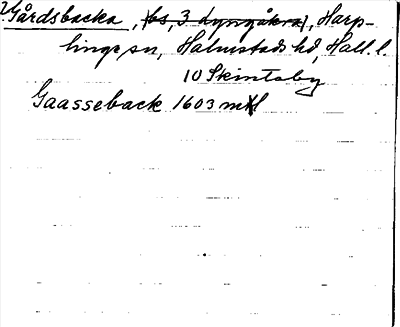 Gårdsbacka, bs, 3 Lyngåkra, Harp-
linge sn, Halmstads hd, Hall. l.
10 Skintaby
Gaasseback 1603 mtl